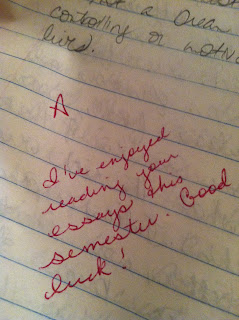 a
controlling or
live).
A
I've enjoyed
reading your
essays this
semester. Good
luck!